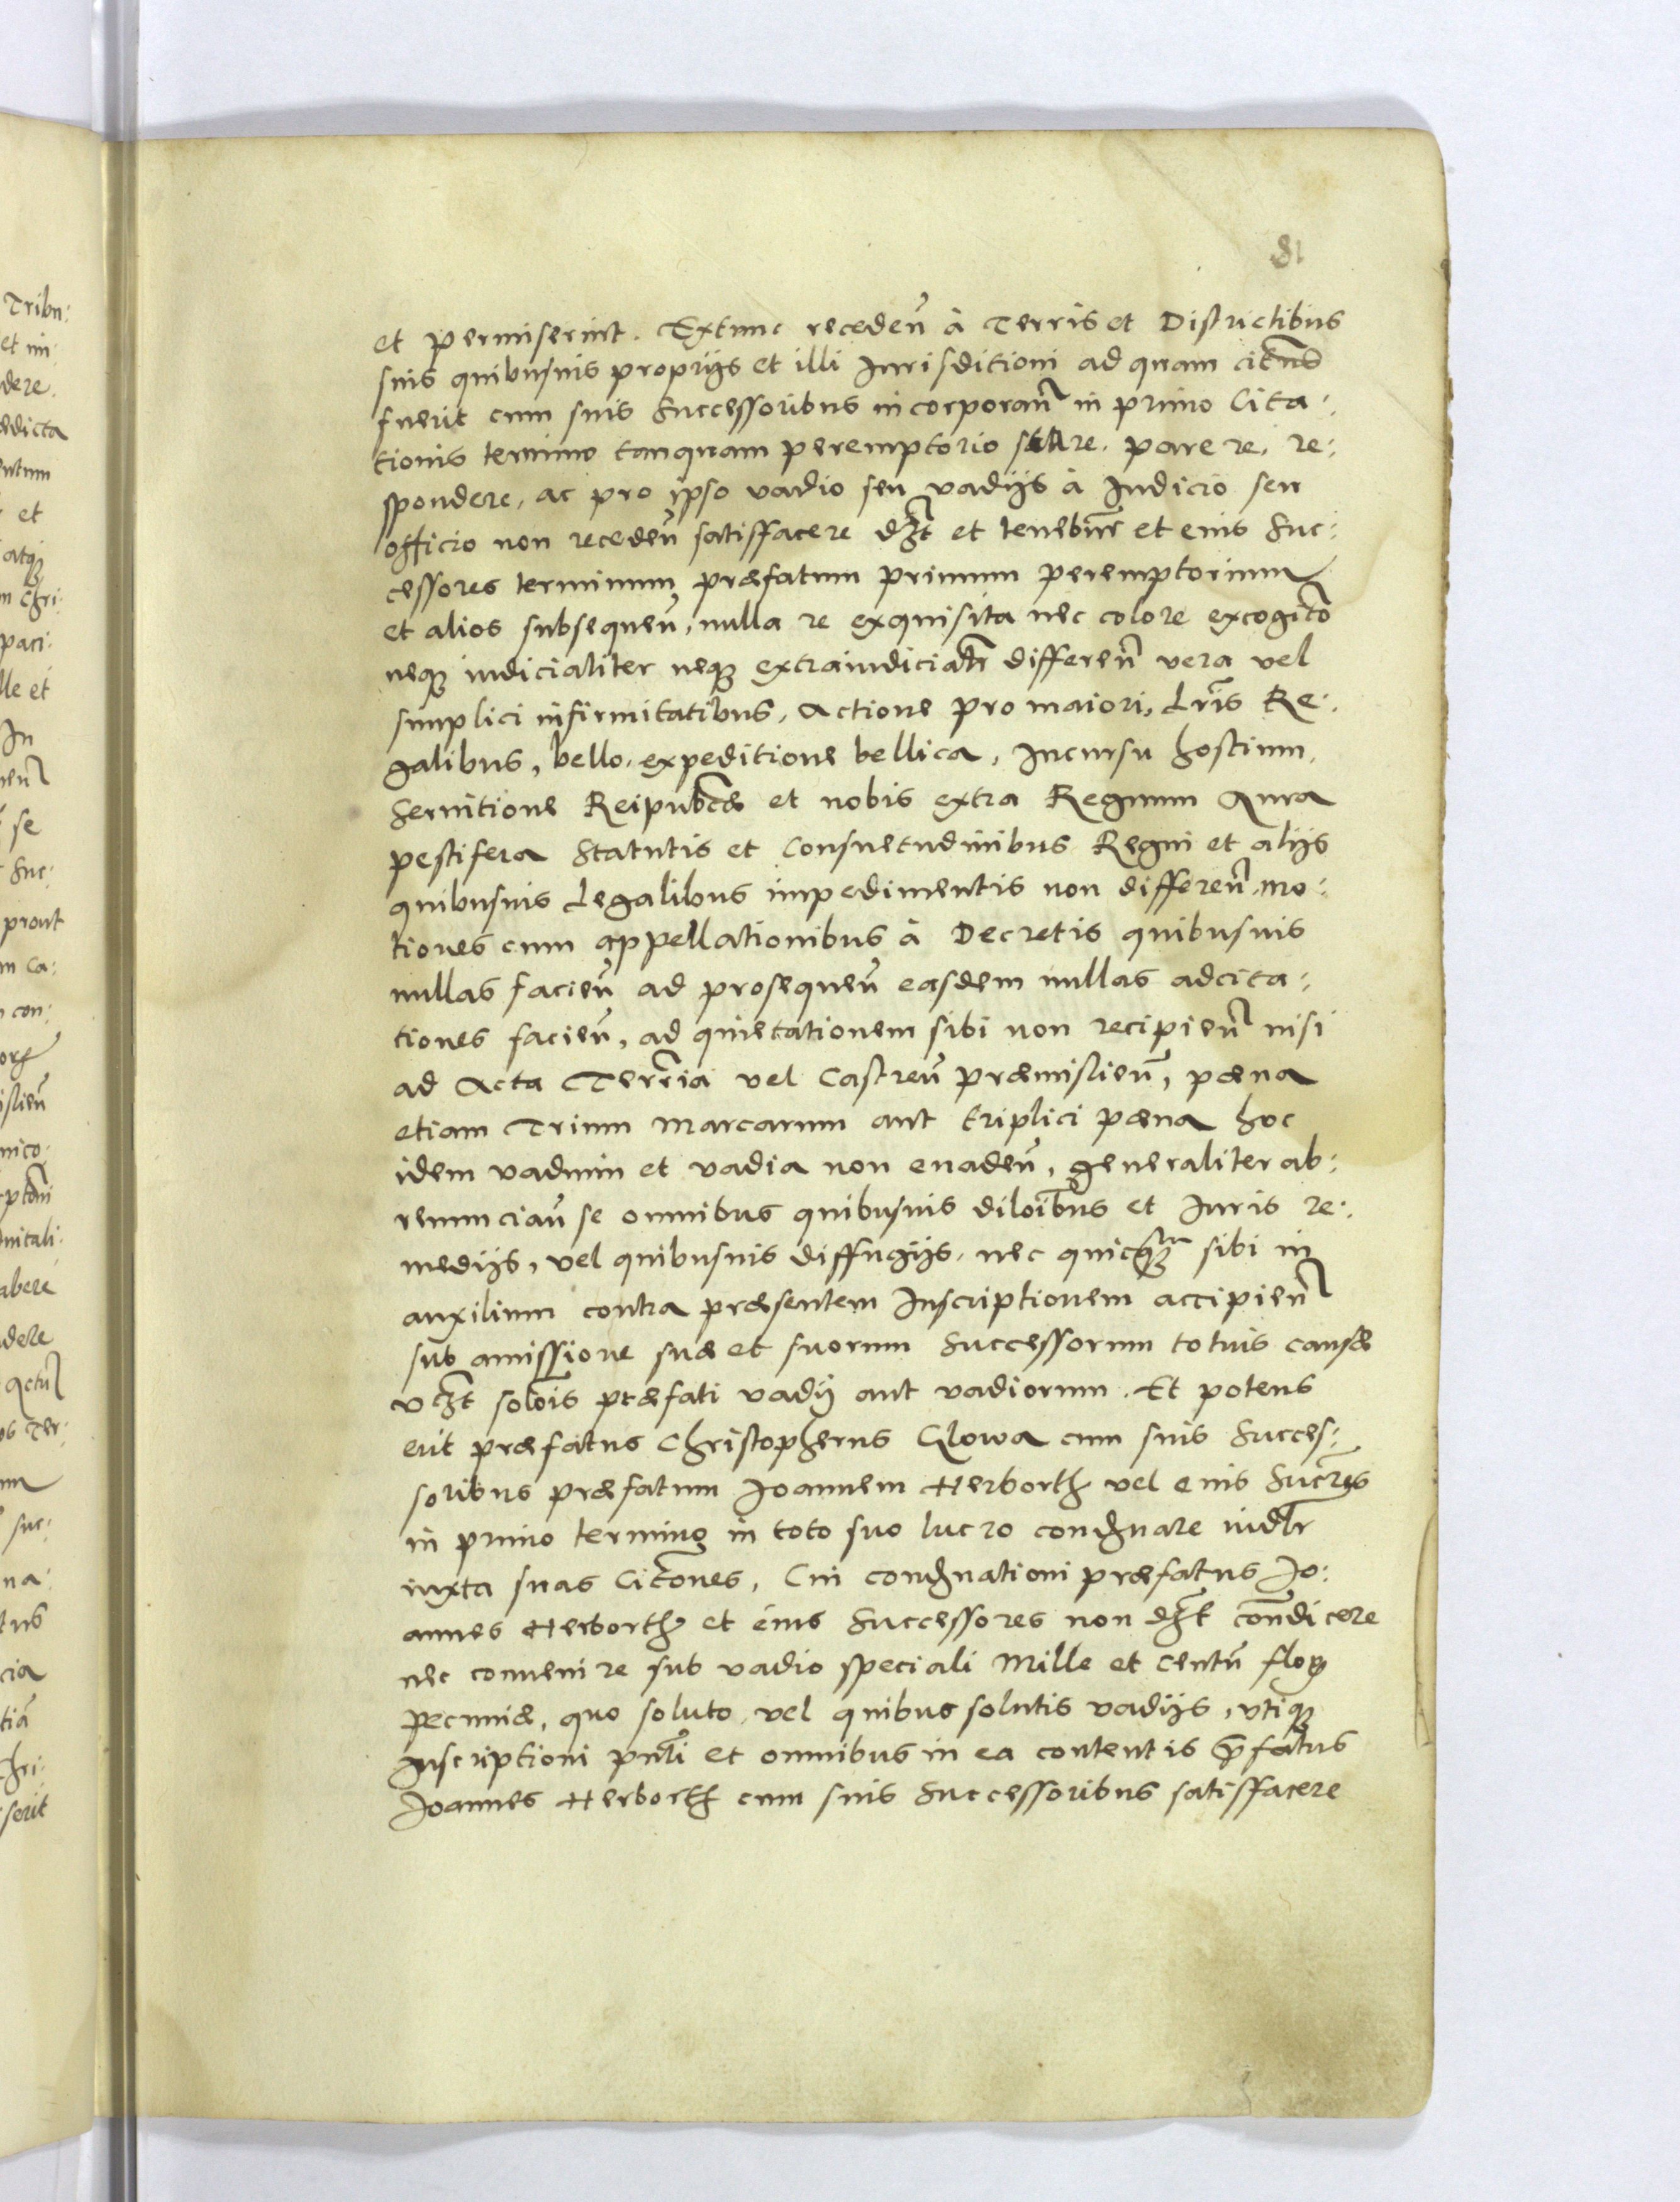 et permiserint. Extunc recedeñ à Terris et Districtibus
suis quibusuis proprijs et illi Jurisditioni ad quam citus
fuerit cum suis Successoribus incorporañ in primo Cita:
tionis termino tanquam peremptorio stare, parere, re:
spondere, ac pro ipso vadio seu vadijs à Judicio seu
officio non recedeñ satisfacere dȝt et tenebitur et eius Suc:
cessores terminum præfatum primum peremptorium
et alios subsequeñ, nulla re exquisita nec colore excogito
neqȝ iudicialiter neqȝ extraiudicialr differeñ vera vel
simplici infirmitatibus, Actione pro maiori, Lris Re:
galibus, bello, expeditione bellica, Incursu hostium,
Seruitione Reipublcæ et nobis extra Regnum Aura
pestifera Statutis et Consuetudinibus Regni et alijs
quibusuis Legalibus impedimentis non differeñ, mo:
tiones cum appellationibus à Decretis quibusuis
nullas facieñ ad prosequeñ easdem nullas adcita:
tiones facieñ, ad quietationem sibi non recipieñ nisi
ad Acta Terria vel Castreñ Præmislieñ, pæna
etiam Trium Marcarum aut triplici pæna hoc
idem vadium et vadia non euadeñ, generaliter ab:
renunciañ se omnibus quibusuis diloibus et Juris re:
medijs, vel quibusuis diffugijs, nec quicqȝ sibi in
auxilium contra præsentem Inscriptionem accipieñ
sub amissione suæ et suorum Successorum totius causæ
vȝt solois præfati vadij aut vadiorum. Et potens
erit præfatus Christopherus Glowa cum suis Succes:
soribus præfatum Joannem Herborth vel eius Sucres
in primo termino in toto suo lucro condȝnare iudlr
iuxta suas Citõnes, Cui condȝnationi præfatus Jo:
annes Herborth et eius Successores non dȝt condicere
nec conuenire sub vadio speciali Mille et Centũ flor
pecuniæ, quo soluto, vel quibus solutis vadijs, vtiqȝ
Inscriptioni pnti et omnibus in ea contentis pfatus
Joannes Herborth cum suis Successoribus satisfacere